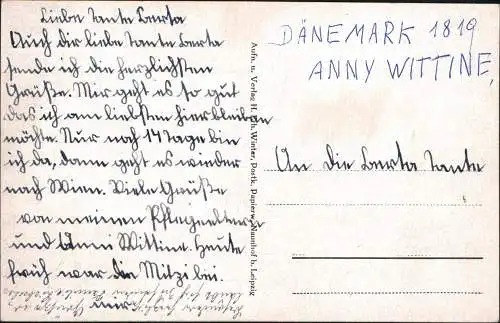 Liebe Tante Berta
Auch dir liebe Tante Berta
sende ich die herzlichsten
Grüße. Mir geht es so gut
das ich am liebsten hier bleiben
möchte. Nur noch 14 Tage bin
ich da, dann geht es wieder
nach Wien. Viele Grüße
von meinen Pflegeeltern
und Anni Wittine. Heute
früh war die Mitzi bei
DÄNEMARK 1819
ANNY WITTINE,
An die Berta Tante
Aufn. u. Verlag H. Winter, Postk. Papierw. Naunhof b. Leipzig